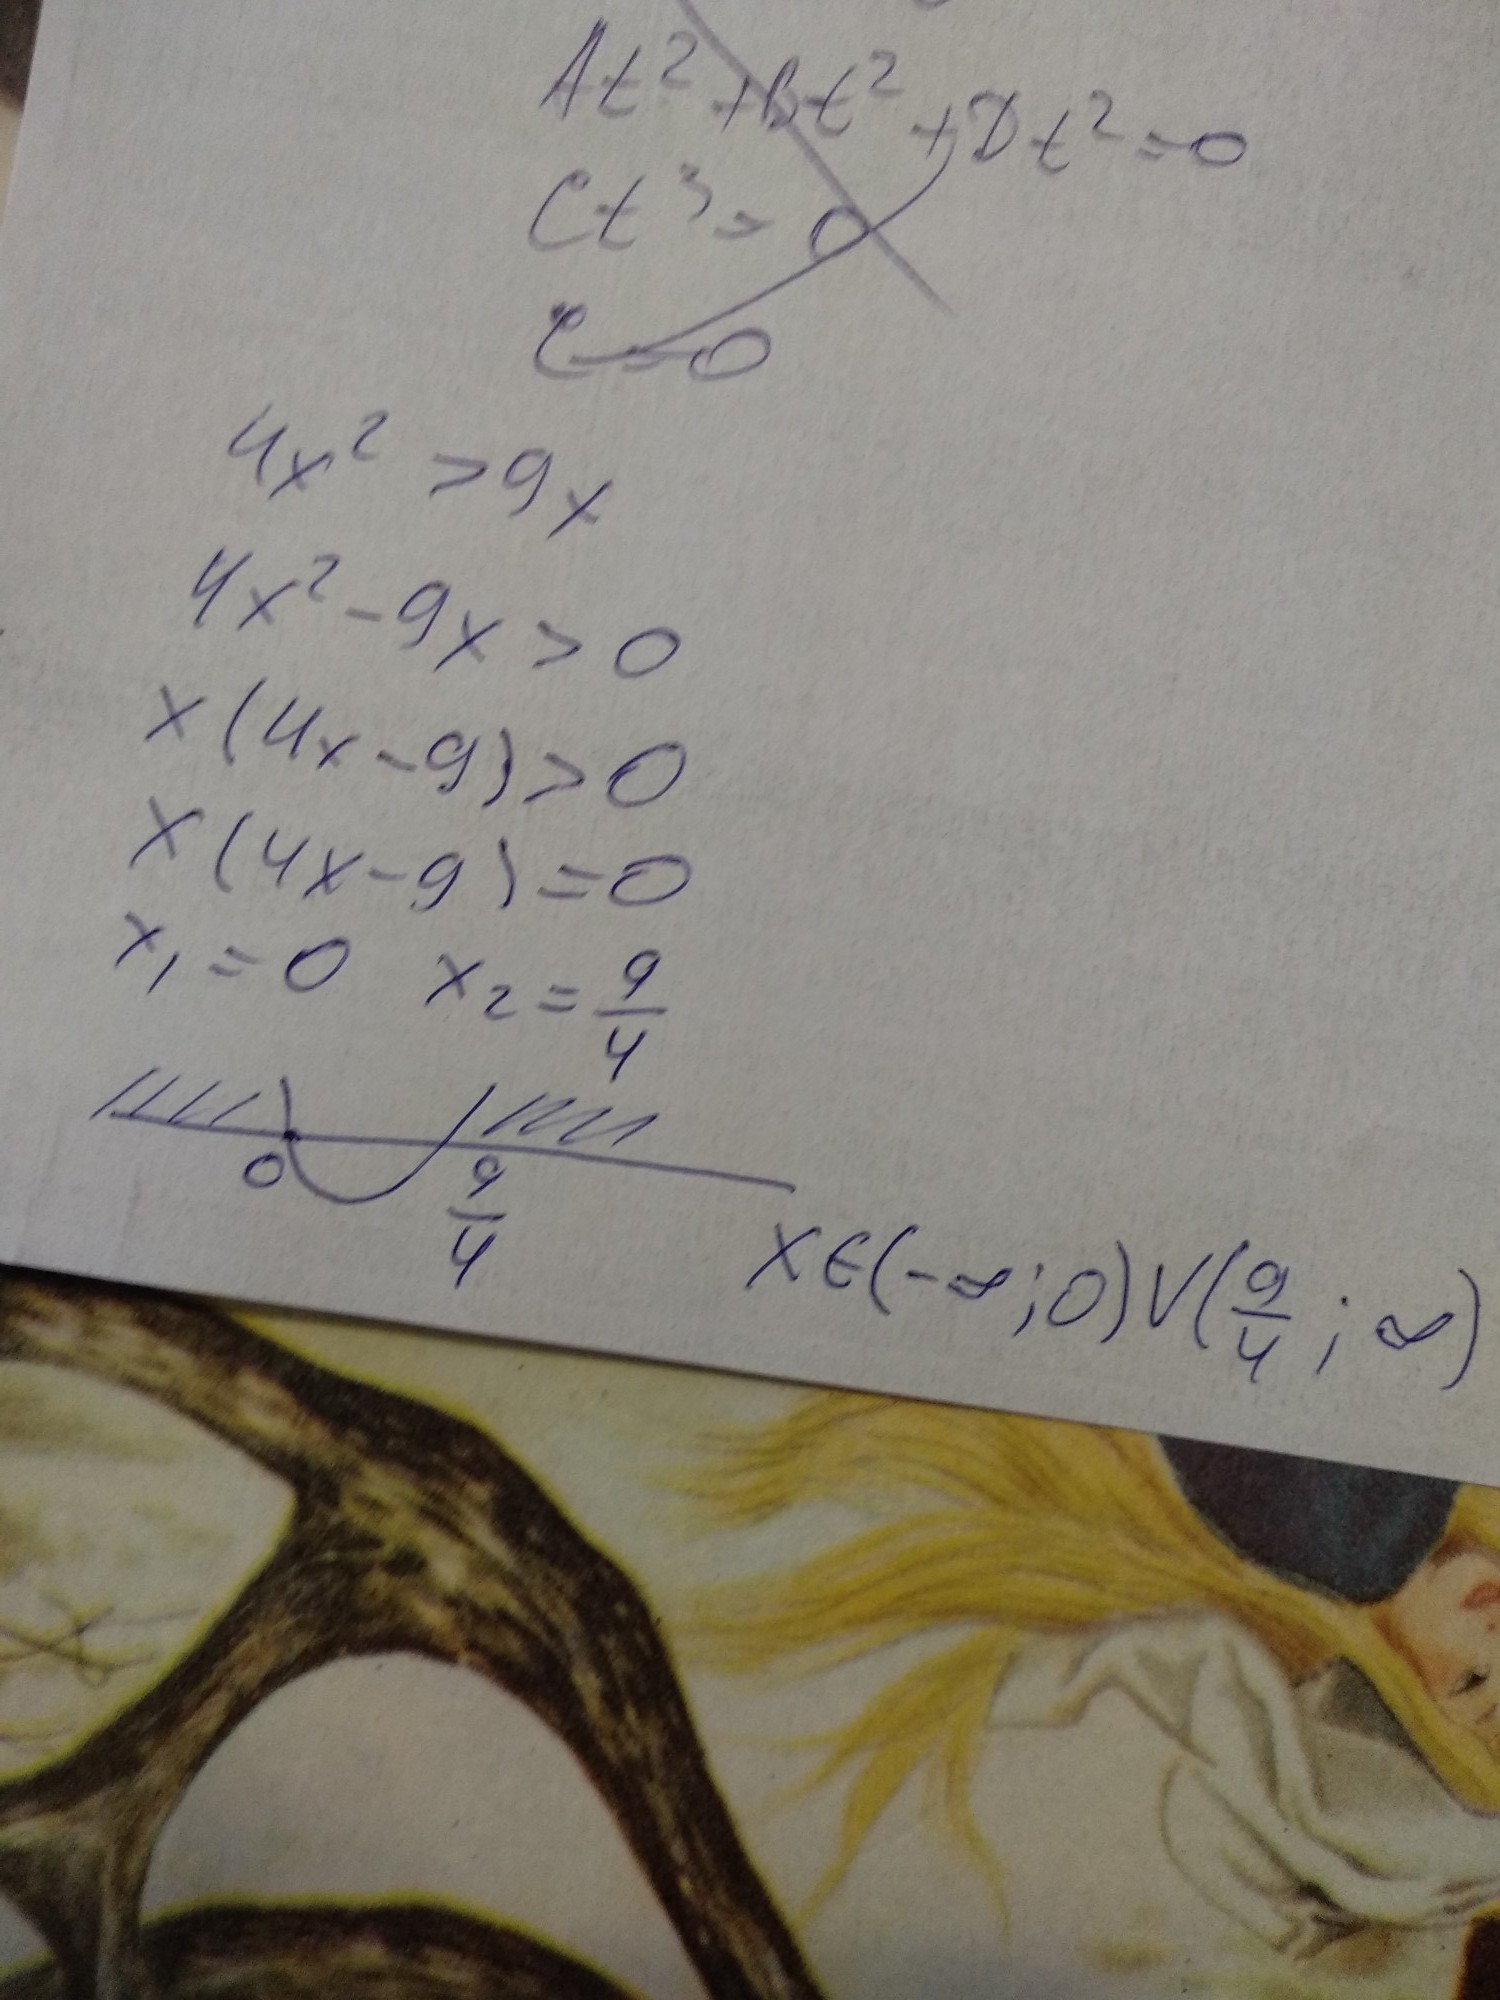 At² + Bt² + Dt² = 0
Ct³ = 0
C = 0
4x² > 9x
4x² - 9x > 0
x(4x - 9) > 0
x(4x - 9) = 0
x₁ = 0 x₂ = 9/4
0 9/4
x ∈ (-∞; 0) ∪ (9/4; ∞)